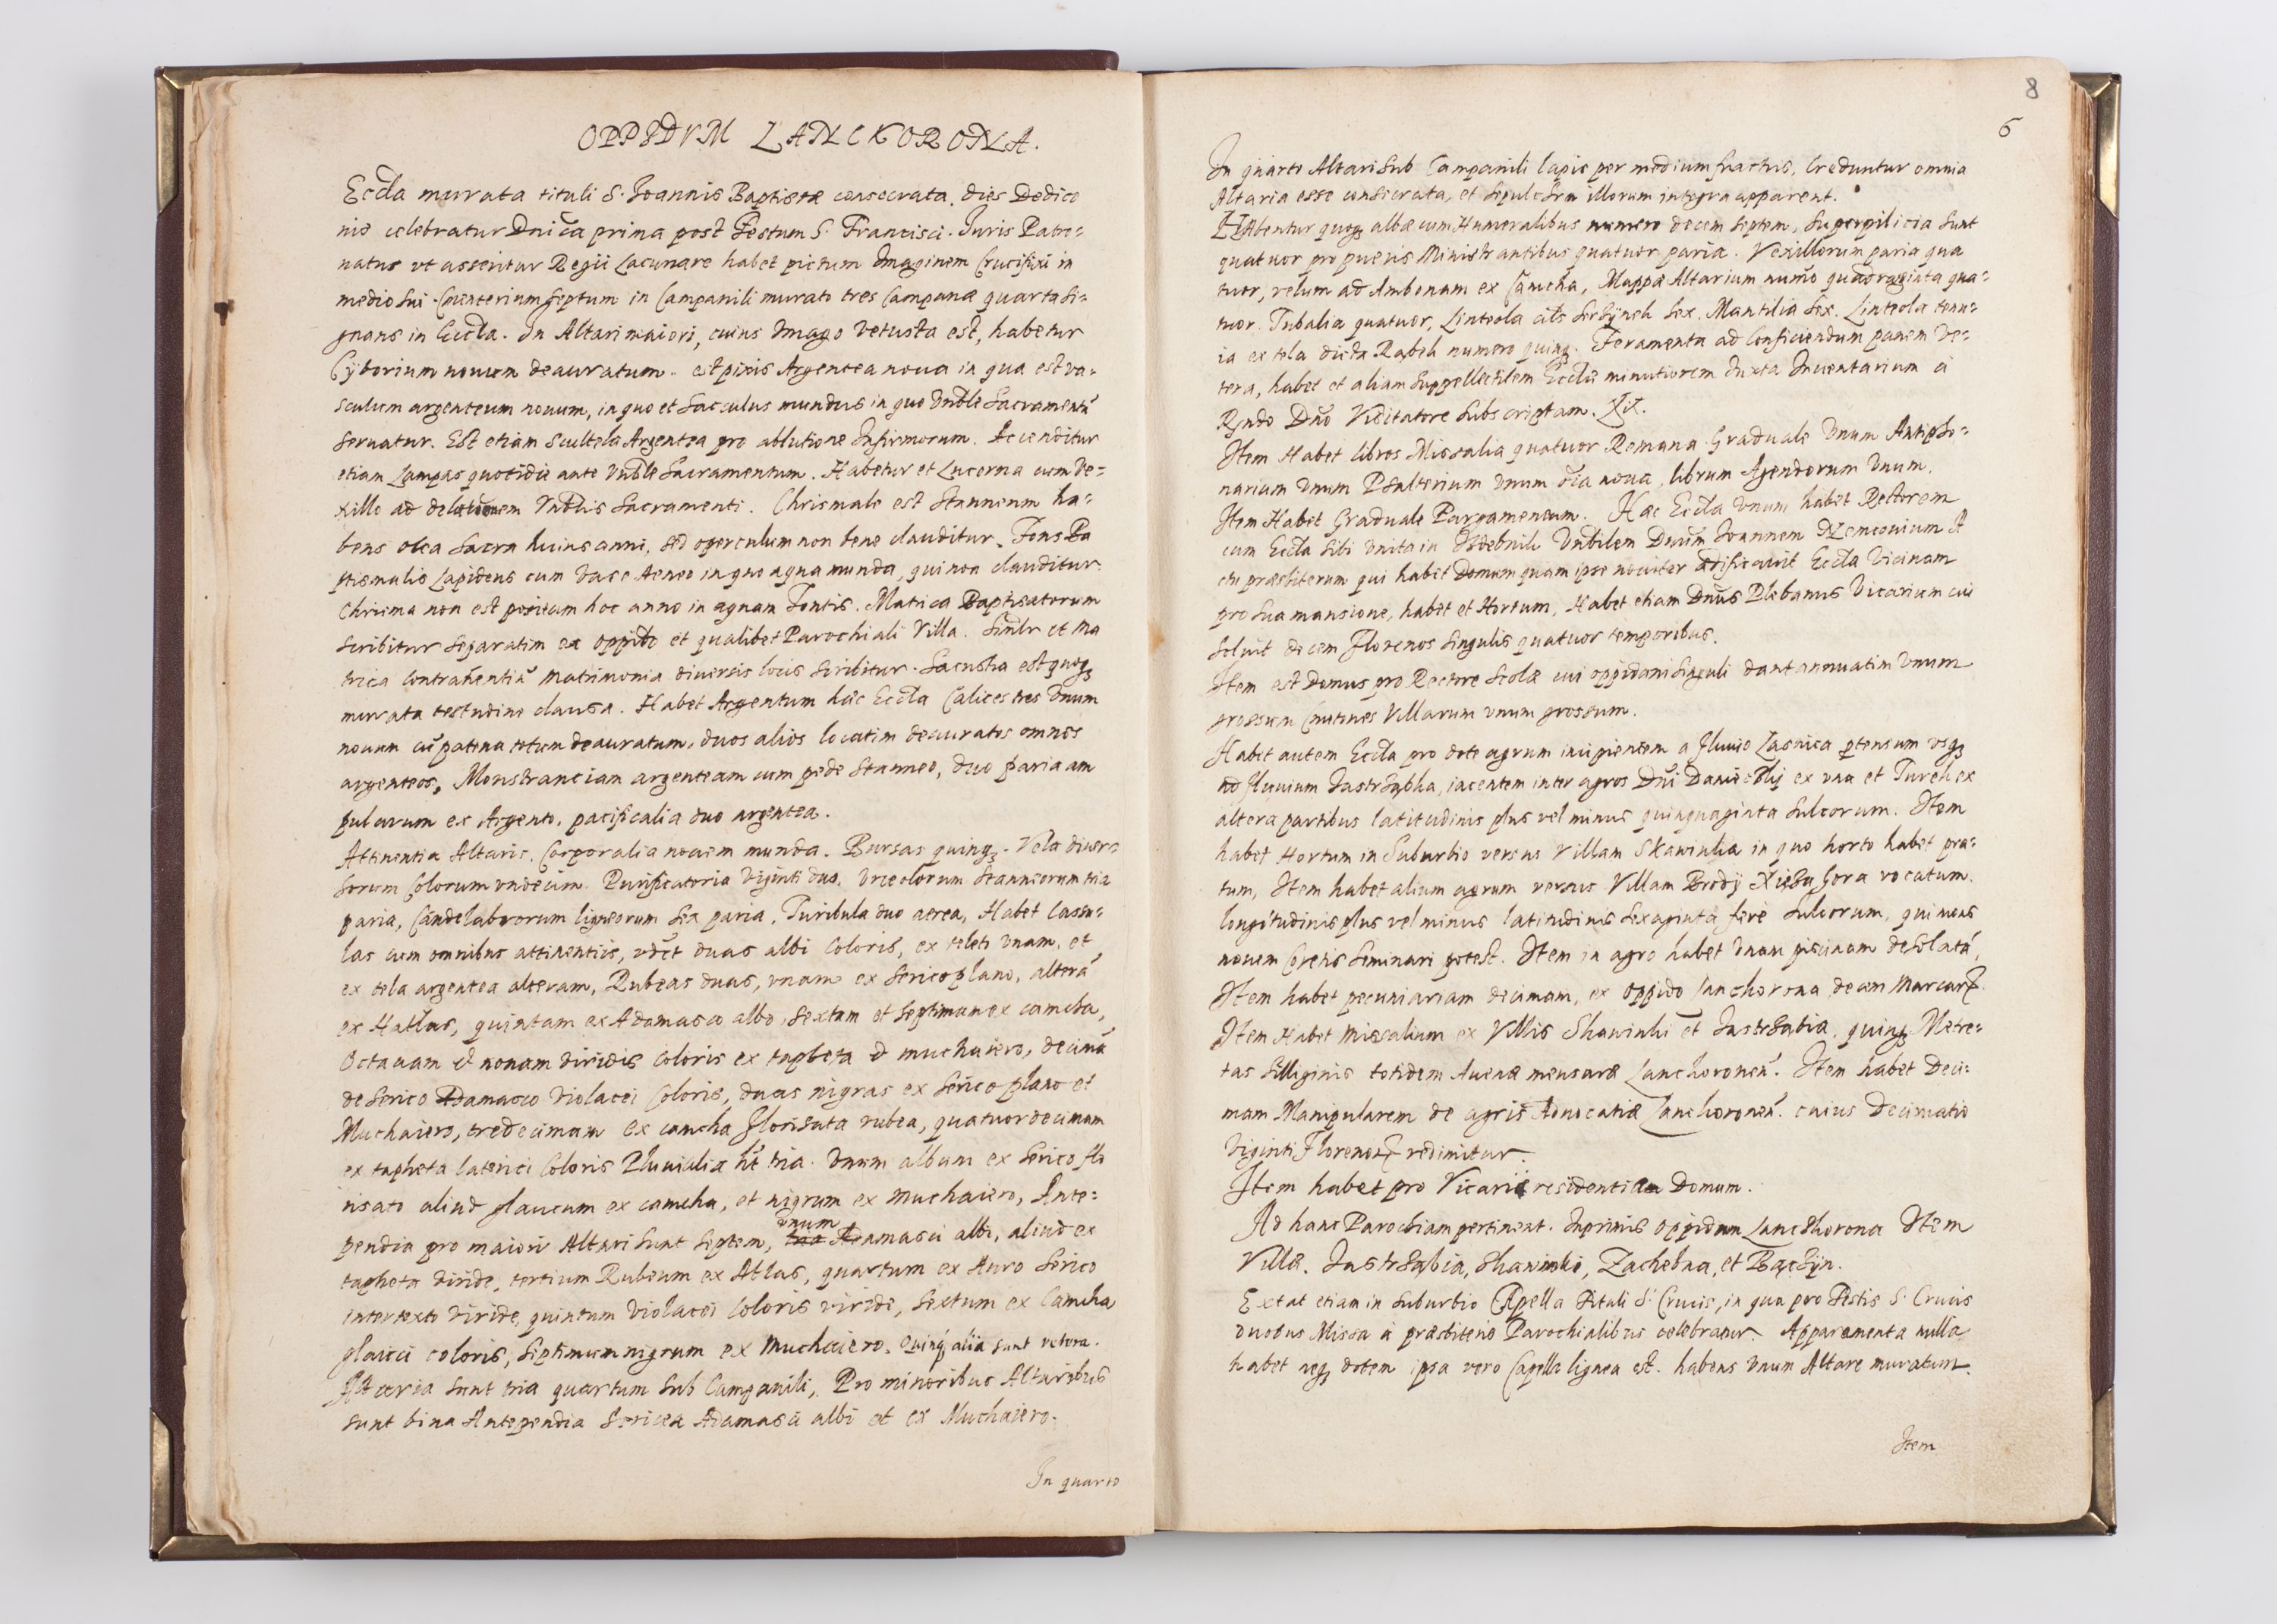 OPPIDVM LANCKORONA.
Eccła murata tituli S. Joannis Baptistæ consecrata. dies Dedica
nis celebratur Dnica prima post Festum S. Francisci. Juris Patro-
natus vt asseritur Regii Lacunare habet pictum Imaginem Crucifixi in
medio sui. Cæmiterium septum in Campanili murato tres Campanæ quarta si-
gnans in Eccła. In Altari maiori, cuius Imago vetusta est, habetur
Cÿborium nouum deauratum. et pixis Argentea noua in qua est va-
sculum argenteum nouum, in quo et sacculus mundus in quo Vnble Sacramentū
seruatur. Est etiam scultela Argentea pro ablutione Infirmorum. Accenditur
etiam Lampas quotidie ante Vnble Sacramentum. Habetur et Lucerna cum ve-
xillo ad delationem Vnblis Sacramenti. Chrismale est stanneum ha-
bens olea sacra huius anni, sed operculum non bene clauditur. Fons Ba
ptismalis Lapideus cum vase Aeneo in quo aqua munda, qui non clauditur
Chrisma non est positum hoc anno in aquam Fontis. Matrica Baptisatorum
scribitur separatim ex oppido et qualibet Parochiali Villa. Simlr et Ma
trica contrahentiū Matrimonia diuersis locis scribitur. Sacristia est quoqꝫ
murata testudine clausa. Habet Argentum hæc Eccła Calices tres Vnum
nouum cū patena totum deauratum, duos alios locatim deauratos omnes
argenteos, Monstranciam argenteam cum pede stanneo, duo paria am
pularum ex Argento, pacificalia duo argentea.
Attinentia Altaris. Corporalia nouem munda. Bursas quinqꝫ. Vela diuer-
sorum Colorum vndecim. Purificatoria Viginti duo, Vrceolorum stanneorum tria
paria, Candelabrorum ligneorum sex paria, Turibula duo aerea, Habet Casu-
las cum omnibus attinentiis, vdct duas albi Coloris, ex teleto vnam, et
ex tela argentea alteram, Rubeas duas, vnam ex serico plano, alterā
ex Hatlas, quintam ex Adamasco albo, sextam et septimam ex camcha,
Octauam et nonam viridis Coloris ex tapheta et muchaiero, decimā
de serico Adamasco violacei Coloris, duas nigras ex serico plano et
Muchaiero, tredecimam ex camcha florisata rubea, quatuordecimam
ex tapheta lateritii Coloris Pluuialia hēt tria. Vnum album ex serico flo
risato aliud glaucum ex camcha, et nigrum ex muchaiero, Ante-
pendia pro maiori Altari sunt septem, vnum Adamasci albi, aliud ex
tapheta viride, tertium Rubeum ex Atlas, quartum ex Auro serico
intertexto viride, quintum violacei Coloris viride, sextum ex Camcha
glauci coloris, septimum nigrum ex muchaiero. Quinqꝫ alia sunt vetera.
Altaria sunt tria quartum sub Campanili, Pro minoribus Altaribus
sunt bina Antependia sericea Adamasci albi et ex Muchaiero.
In quarto
8
6
In quarto Altari sub Campanili lapis per medium fractus, Creduntur omnia
Altaria esse consecrata, et sepulchra illorum integra apparent.
HAbentur quoqꝫ albæ cum Humeralibus numero decem septem, superpilicia sunt
quatuor pro pueris Ministrantibus quatuor paria. Vexillorum paria qua
tuor, velum ad Ambonam ex Camcha, Mappæ Altarium numō quadraginta qua-
tuor. Tubalia quatuor, Linteola als sex. Mantilia sex. Linteola tenu-
ia ex tela dicta Rąbek numero quinqꝫ. Feramenta ad Conficiendum panem ve-
tera, habet et aliam suppellectilem Ecclæ minutiorem Juxta Inuentarium à
Rndo Dno Visitatore subscriptam.
Item Habet libros Missalia quatuor Romana Graduale Vnum Antipho-
narium Vnum Psalterium Vnum oīa noua, librum Agendorum Vnum.
Item Habet Graduale Pargameneum. Hæc Eccła Vnum habet Rectorem
cum Eccła sibi vnita in Jzdebnik Vnbilem Dnum Joannem A
ctu præsbiterum qui habet Domum quam ipse nouiter ædificauit Eccłæ Vicinam
pro sua mansione, habet et Hortum, Habet etiam Dnus Plebanus Vicarium cui
soluit decem florenos singulis quatuor temporibus.
Item est Domus pro Rectore Scolæ cui oppidani singuli dant annuatim Vnum
grossum Cmetones Villarum vnum grossum.
Habet autem Eccła pro dote agrum incipientem a fluuio Lasnica ptensum vsqꝫ
ad fluuium Jastrząbka, iacentem inter agros Dni ex vna et Turek ex
altera partibus latitudinis plus vel minus quinquaginta sulcorum. Item
habet Hortum in suburbio versus Villam Skawinkÿ in quo horto habet pra-
tum, Item habet aliam agrum versus Villam Brodÿ Xięża Gora vocatum
longitudinis plus vel minus latitudinis sexaginta ferè sulcorum, qui mens
nouem Coretis seminari potest. Item in agro habet Vnam piscinam desolatā,
Item habet pecuniariam decimam, ex oppido Lanchorona decem Marcarꝝ
Item Habet Missalium ex Villis Skawinki et Jastrzabia quinqꝫ Metre-
tas siliginis totidem Auenæ mensuræ Lanchoronen̄. Item habet Deci-
mam Manipularem de agris Aduocatiæ Lanchoronen̄. cuius Decimatio
Viginti Florenorꝝ redimitur.
Item habet pro Vicarii residentia Domum.
Ad hanc Parochiam pertinent. Inprimis oppidum Lanckorona Item
Villæ. Jastrząbia, Skawinki, Zachełna, et Bączÿn.
Extat etiam in suburbio Capella Tituli S. Crucis, in qua pro Festis S. Crucis
duobus Missa à præsbiteris Parochialibus celebratur. Apparamenta nulla
habet neqꝫ dotem ipsa vero Capella lignea est. habens Vnum Altare muratum.
Item